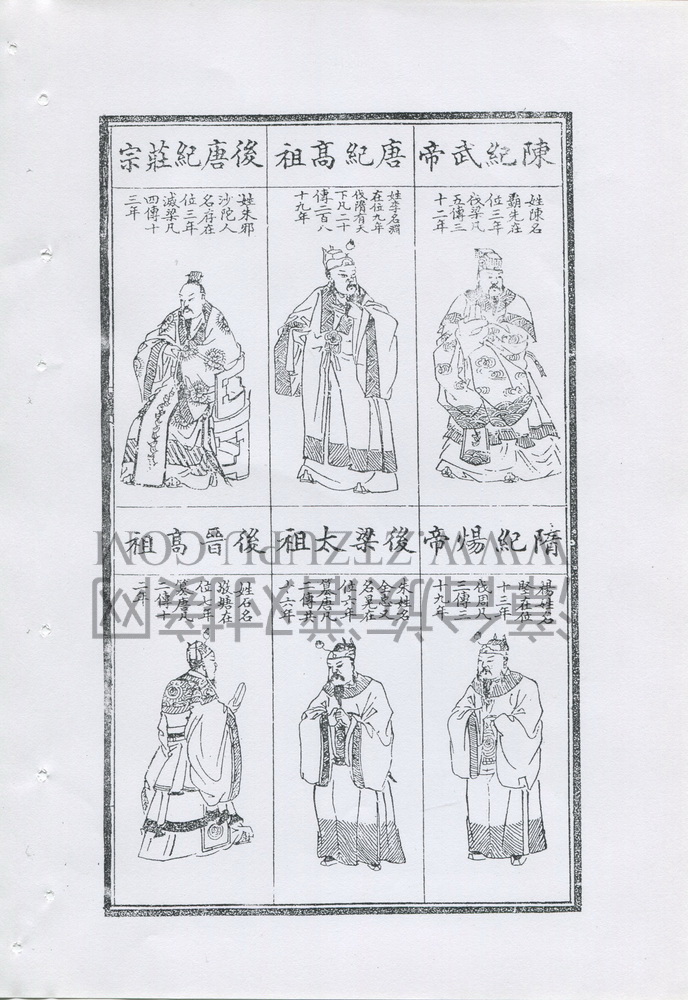 陳紀武帝
姓陳名
霸先在
位三年
伐梁凡
五傳三
十二年
唐紀高祖
姓李名淵
在位九年
伐隋有天
下凡二十
傳二百八
十九年
後唐紀莊宗
姓朱邪
沙陀人
名存在
位三年
滅梁凡
四傳十
三年
隋紀煬帝
楊姓名
堅在位
十二年
伐周凡
三傳三
十九年
後梁太祖
朱姓名
全忠又
名晃在
位六年
篡唐凡
二傳共
十六年
後晉高祖
姓石名
敬瑭在
位七年
篡唐凡
二傳十
一年
WWW.ZTZUPU.COM